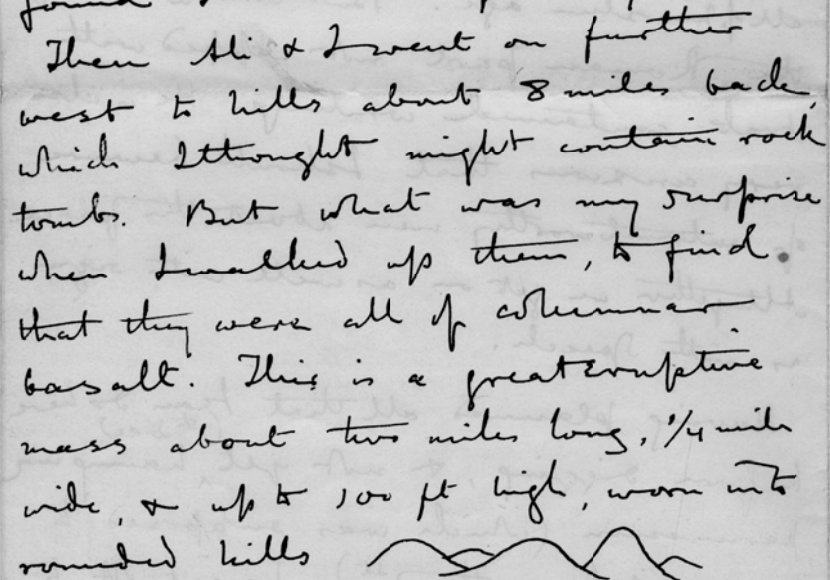 found
Then Ali & I went on further
west to hills about 8 miles back,
which I thought might contain rock
tombs. But what was my surprise
when I walked up them, to find
that they were all of columnar
basalt. This is a great eruptive
mass about two miles long, 1/4 mile
wide, & up to 100 ft high, worn into
rounded hills